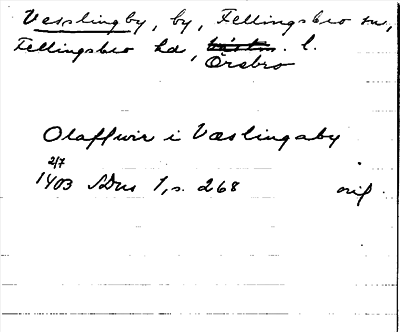 Vesslingby, by, Fellingsbro sn,
Fellingsbro hd, l.
Örebro
Olaffwir i Væslingaby
2/7
1403 SDns 1, s. 268 orig.